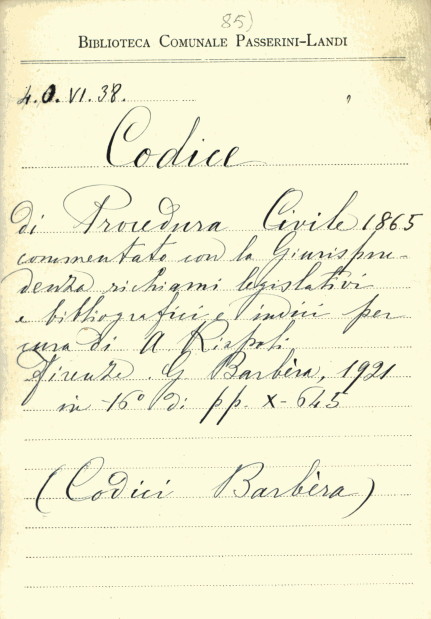 85)
BIBLIOTECA COMUNALE PASSERINI-LANDI
4.O.VI.38. "
Codice
di Procedura Civile 1865
commentato con la Giurispru-
denza richiami legislativi
e bibliografici e indici per
cura di A Rispoli
Firenze. G Barbèra, 1921
in -16° di pp. X-645
(Codici Barbèra)